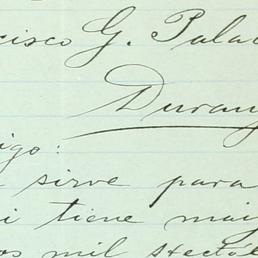 cisco G. Palac
Durang
igo:
sirve para
i tiene mai
os mil hectól